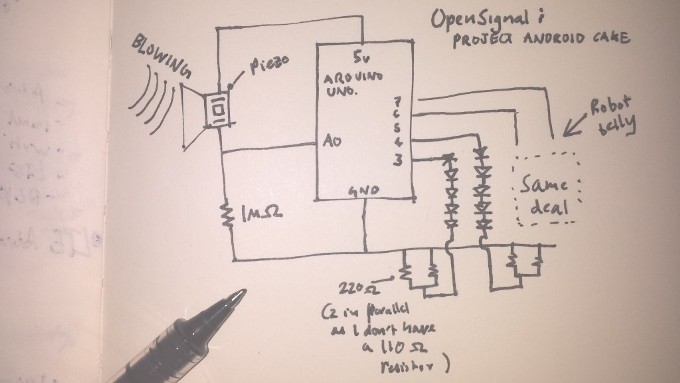 OpenSignal :
PROJECT ANDROID CAKE
BLOWING
Piezo
5v
ARDUINO
UNO.
7
6
5
4
3
A0
GND
Robot
belly
Same
deal
1MΩ
220Ω
(2 in parallel
as I don't have
a 110 Ω
resistor)